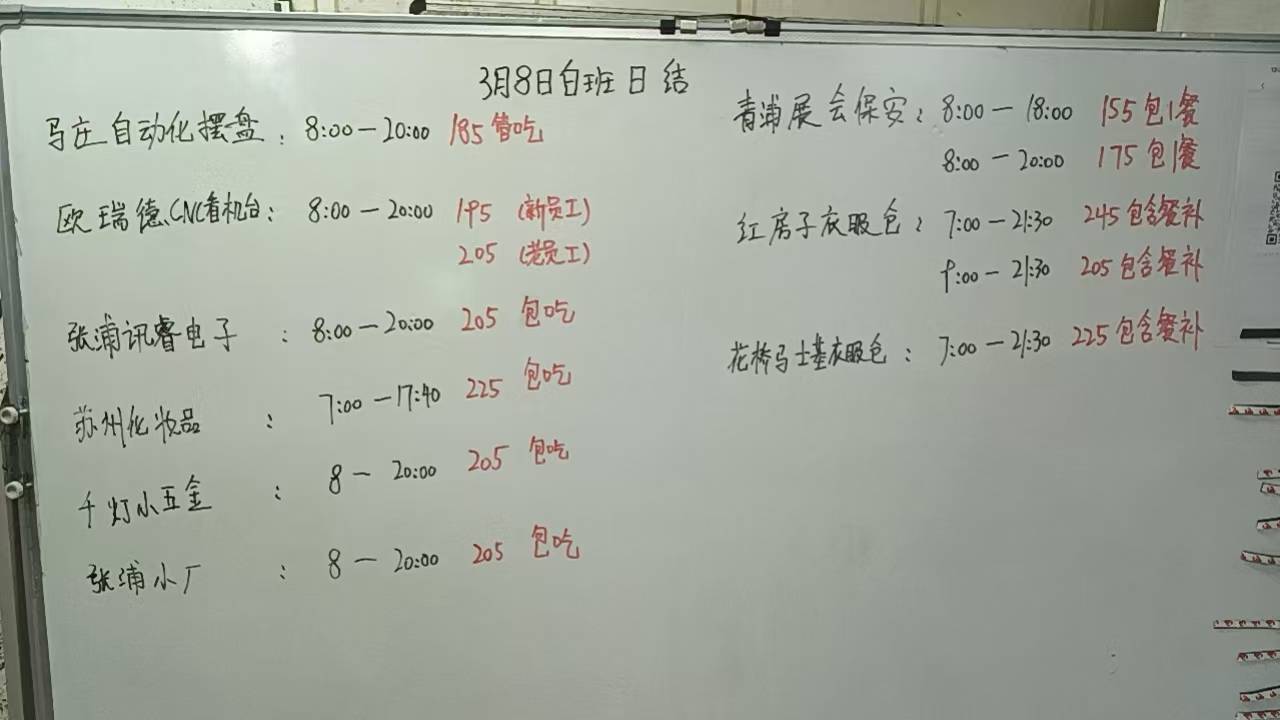 3月8日白班日结
马庄自动化摆盘：8:00—20:00 185管吃
欧瑞德CNC看机台：8:00—20:00 195（新员工）
205（老员工）
张浦讯睿电子：8:00—20:00 205 包吃
苏州化妆品：7:00—17:40 225 包吃
千灯小五金：8—20:00 205 包吃
张浦小厂：8—20:00 205 包吃
青浦展会保安：8:00—18:00 155包1餐
8:00—20:00 175包1餐
红房子衣服包：7:00—21:30 245包含餐补
9:00—21:30 205包含餐补
花桥马士基衣服包：7:00—21:30 225包含餐补